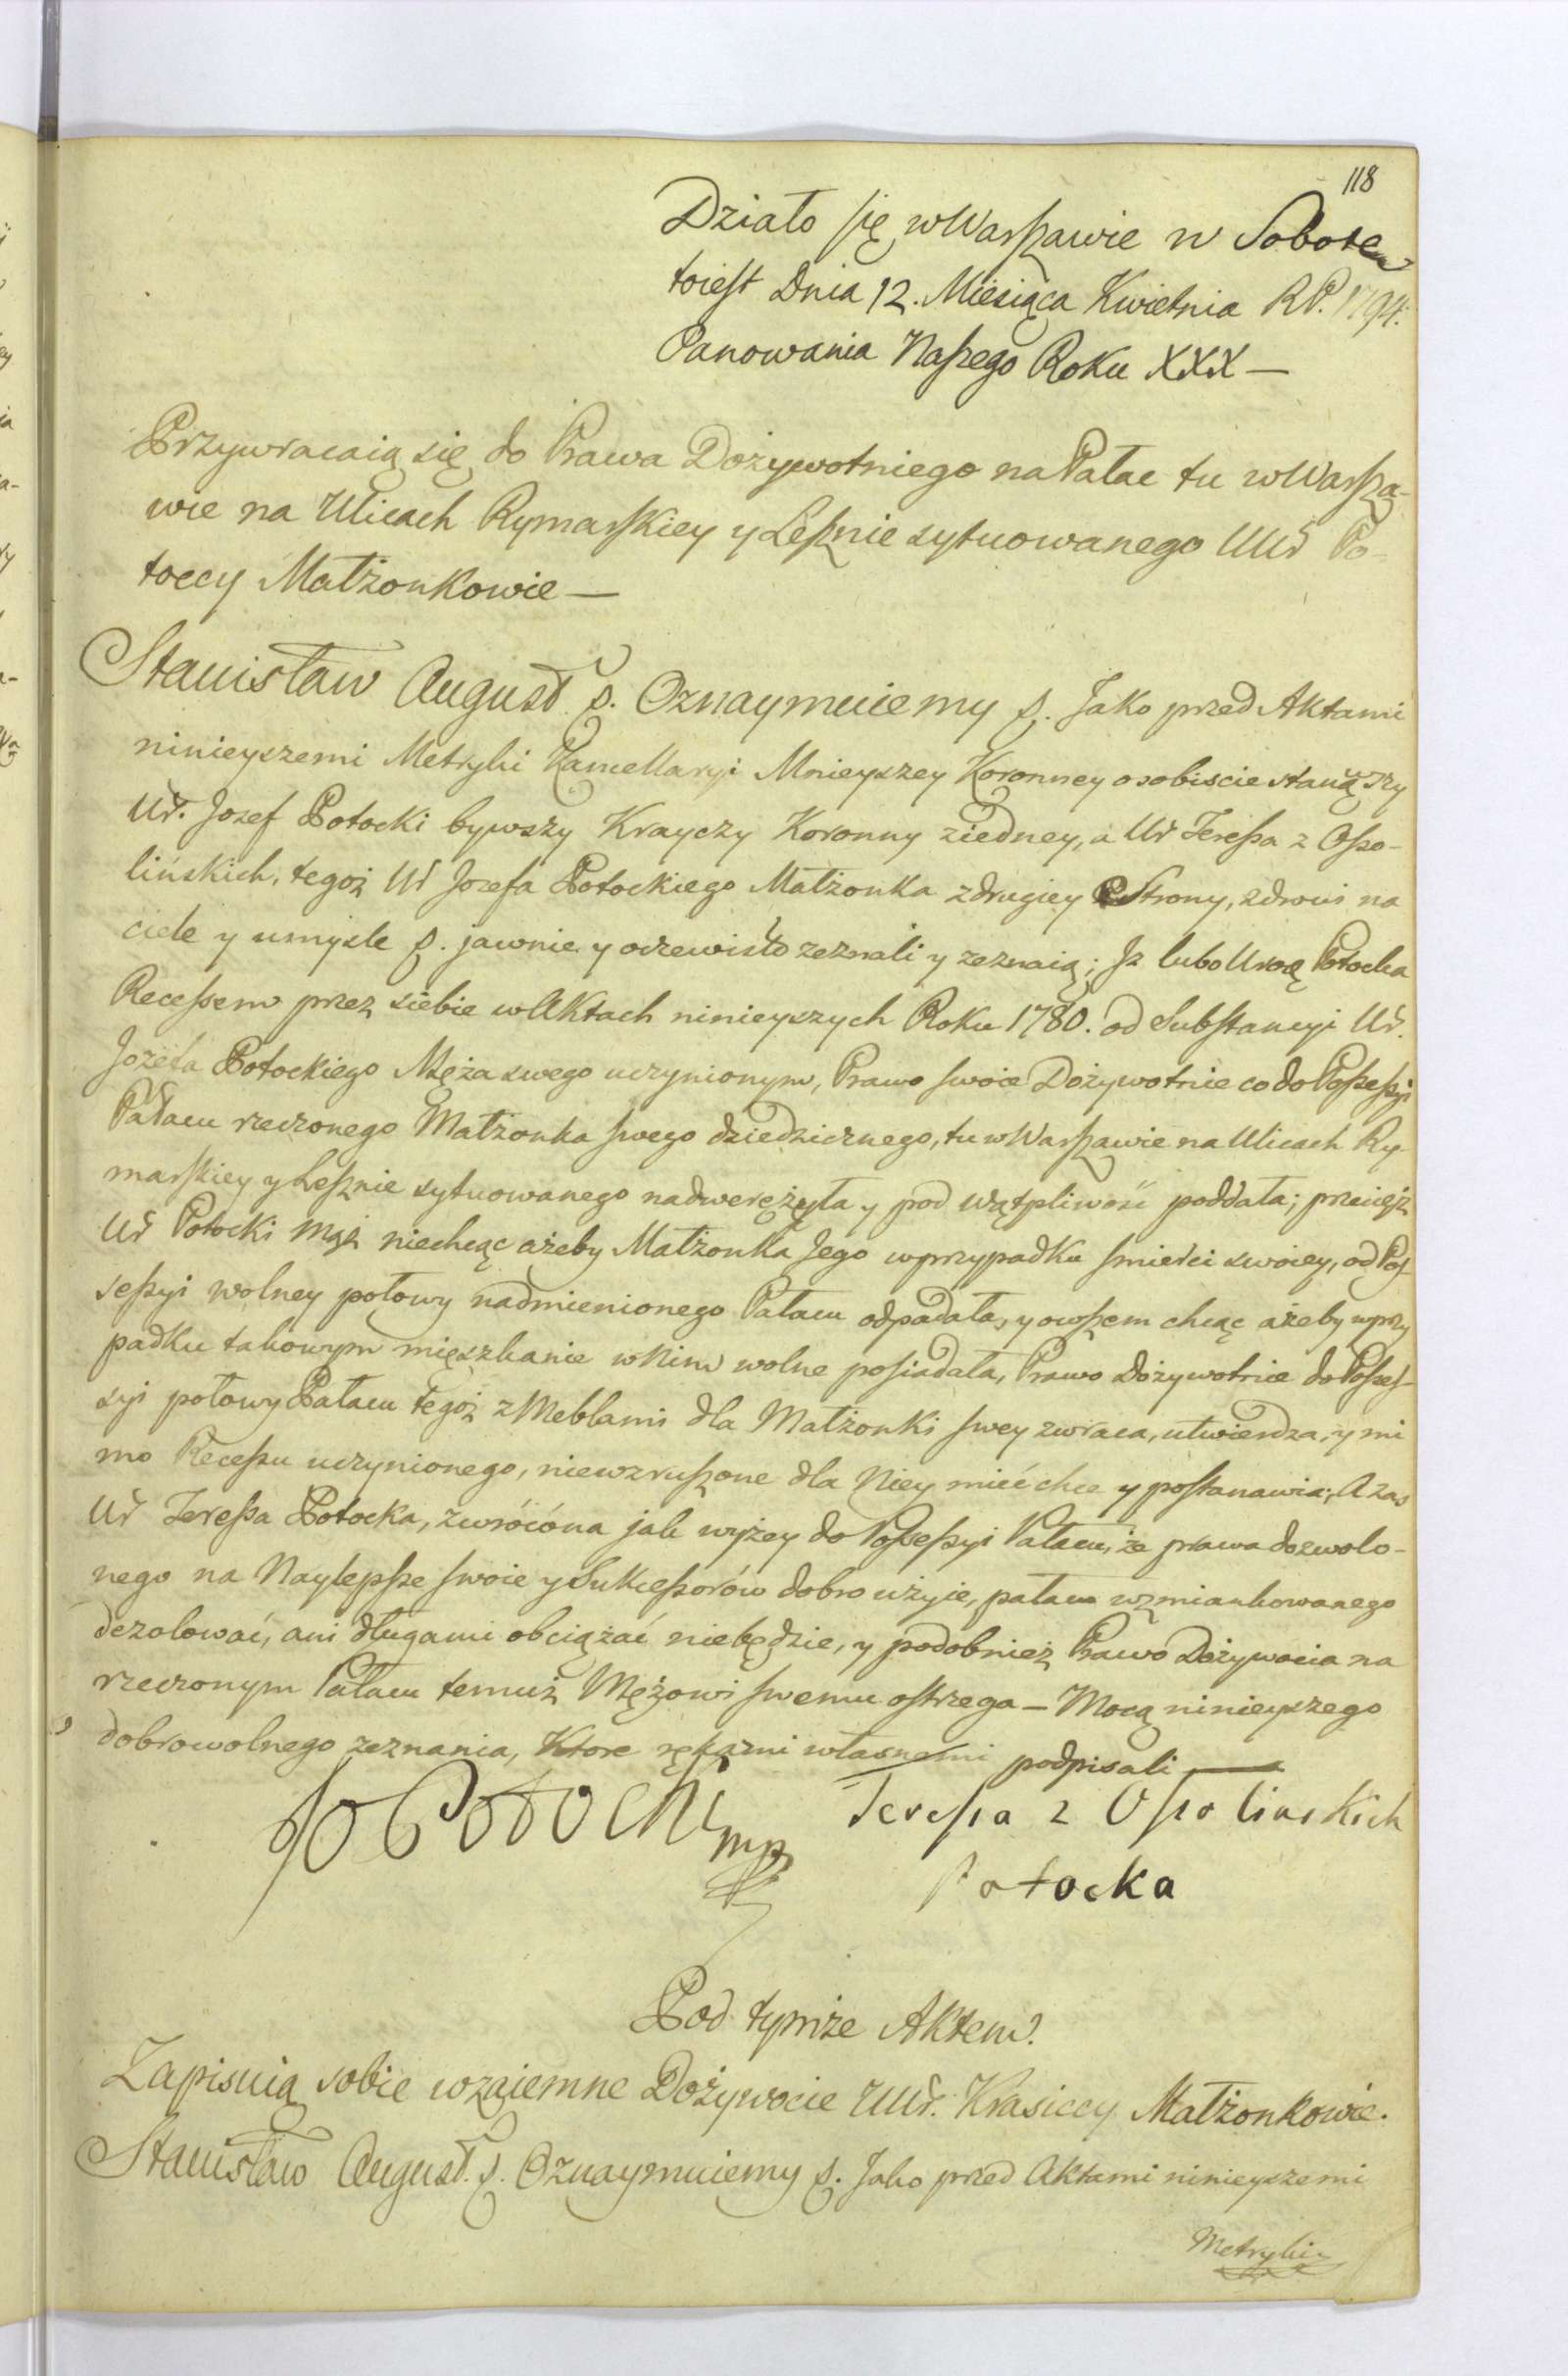 118
Działo się w Warszawie w Sobotę
toiest Dnia 12. Miesiąca Kwietnia R.P. 1794.
Panowania Naszego Roku XXX —
Przywracaią się do Prawa Dożywotniego na Pałac tu w Warsza-
wie na Ulicach Rymarskiey y Lesznie sytuowanego UUr Po-
toccy Małżonkowie —
Stanisław August &. Oznaymuiemy &. Jako przed Aktami
ninieyszemi Metryki Kancellaryi Mnieyszey Koronney osobiście stanąwszy
Ur. Jozef Potocki bywszy Krayczy Koronny ziedney, a Ur Teressa z Osso-
lińskich, tegoż Ur Jozefa Potockiego Małżonka zdrugiey Strony, zdrowi na
ciele y umyśle &. jawnie y oczewisto zeznali y zeznaią; Iz lubo Uroę Potocka
Recessem przez siebie w Aktach ninieyszych Roku 1780. od Substancyi Ur.
Jozefa Potockiego Męża swego uczynionym, Prawo swoie Dożywotnie co do Possessyi
Pałacu rzeczonego Małżonka swego dziedzicznego, tu w Warszawie na Ulicach Ry-
marskiey y Lesznie sytuowanego nadwerężyła y pod wątpliwość poddała; przecięż
Ur Potocki Mąż niechcąc ażeby Małżonka Jego wprzypadku śmierci swoiey, od Pos-
sessyi wolney połowy nadmienionego Pałacu odpadała, y owszem chcąc ażeby wprzy
padku takowym mięszkanie w Nim wolne posiadała, Prawo Dożywotnie do Posses-
syi połowy Pałacu tegoż z Meblami dla Małżonki swey zwraca, utwierdza, y mi
mo Recessu uczynionego, niewzruszone dla Niey mieć chce y postanawia; A zas
Ur Teressa Potocka, zwrócóna jak wyżey do Possessyi Pałacu, że prawa dozwolo-
nego na Naylepsze swoie y Sukcessorów dobro użyie, pałacu wzmiankowanego
dezolować, ani długami obciążać niebędzie, y podobnież Prawo Dożywocia na
rzeczonym Pałacu temuż Mężowi swemu ostrzega — Mocą ninieyszego
dobrowolnego zeznania, Ktore rękami własnemi podpisali —
Jo Potocki mp
Teressa z Ossolinskich
Potocka
Pod tymże Aktem.
Zapisuią sobie wzaiemne Dożywocie UUr. Krasiccy Małżonkowie.
Stanisław August. &. Oznaymuiemy &. Jako przed Aktami ninieyszemi
Metryki